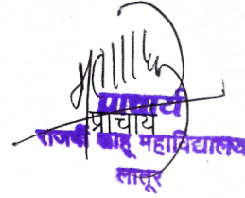 प्राचार्य
प्राचार्य
राजर्षी शाहू महाविद्यालय
लातूर